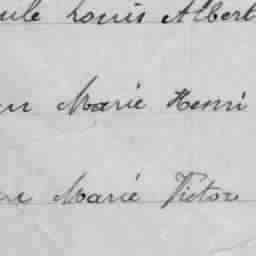 Louis Albert
Marie Henri
Marie Victor